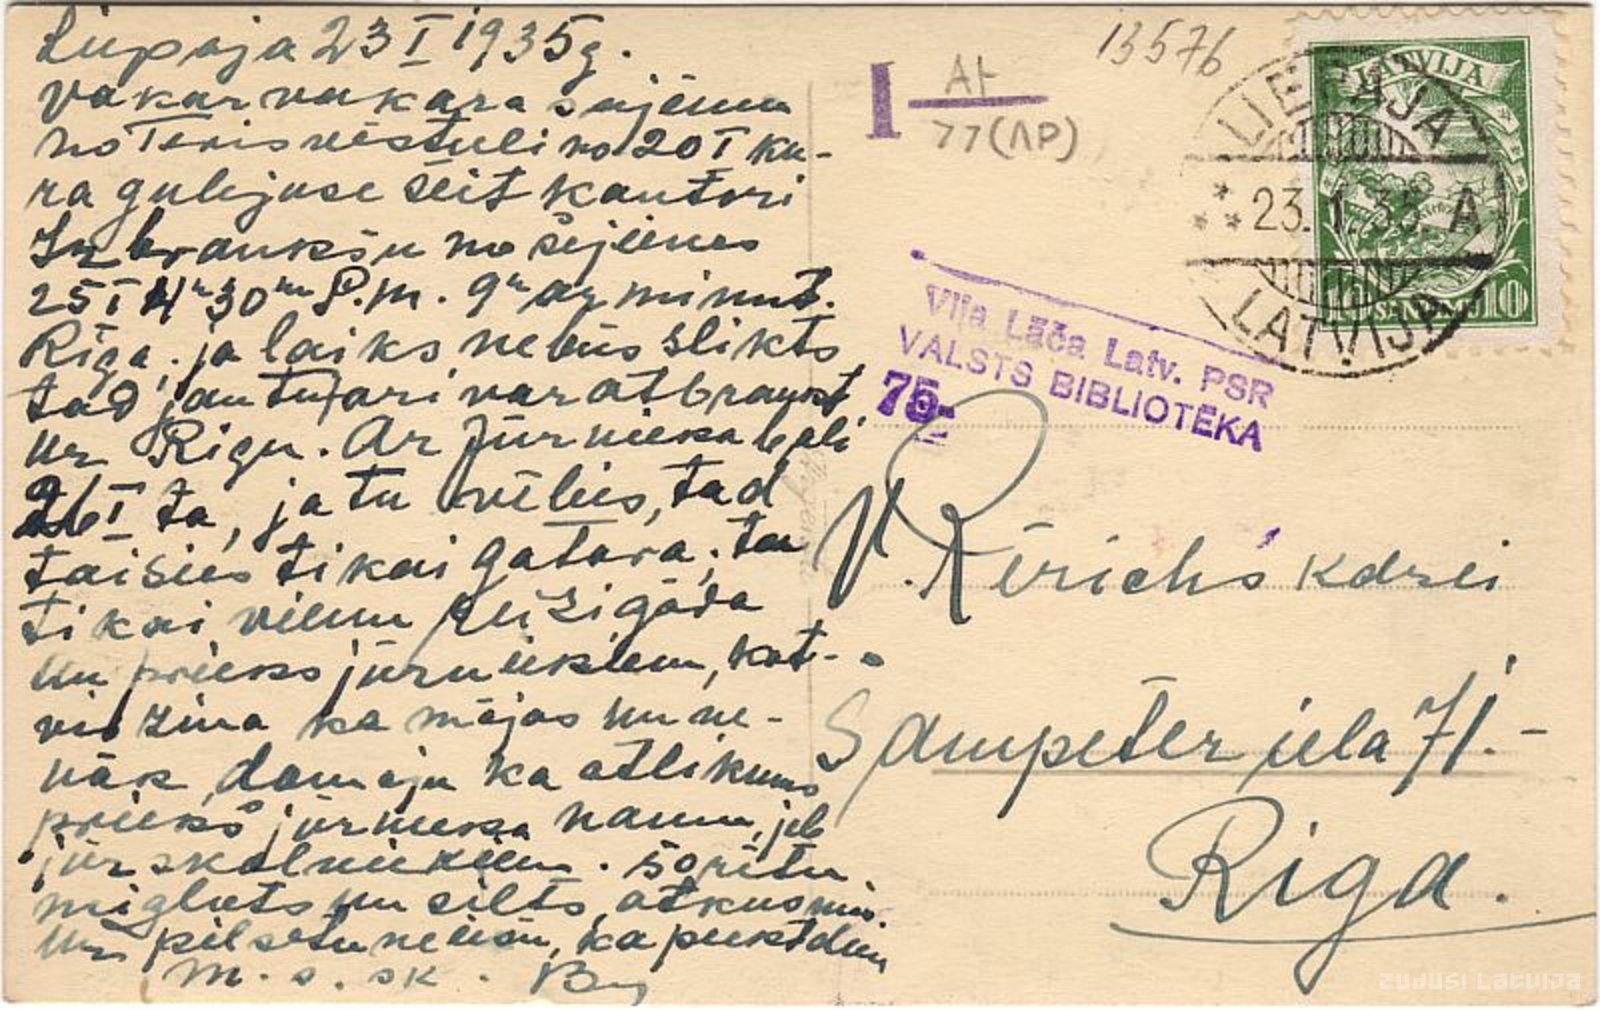 Liepaja 23 I 1935g.
Vakar vakara saņēmu
no Tevis vēstuli no 20 I ku-
ra gulējuse šeit kantori
Iz braukšu no šejienes
25 I 4 30 P.m. 9 ar minut.
Rīga, ja laiks nebūs slikts
tad jau tu ari var atbraukt
uz Rigu. Ar Jūrnieka balli
26 I ta, ja tu vēlies, tad
taisies tikai gatava, ta
tikai vienu reiz gāda
un prieks jūrniekiem, kat-
vis zina ka mājas nu ne-
nāk, domāju ka atlikums
priekš jūrnieka namu, jeb
jūrskolniekiem. šoritu
migluts un silts, atkusnis.
uz pilsētu neiešu, ka piektdien
M. s. sk.
13576
I At
77(ЛР)
LIEPĀJA
23.1.35. A
LATVIJA
LATVIJA
10 SANTIMI 10
Viļa Lāča Latv. PSR
VALSTS BIBLIOTĒKA
75-
V. Rērichs kdzei
Sampeter iela 71.-
Riga.
ZUDUSI LATVIJA